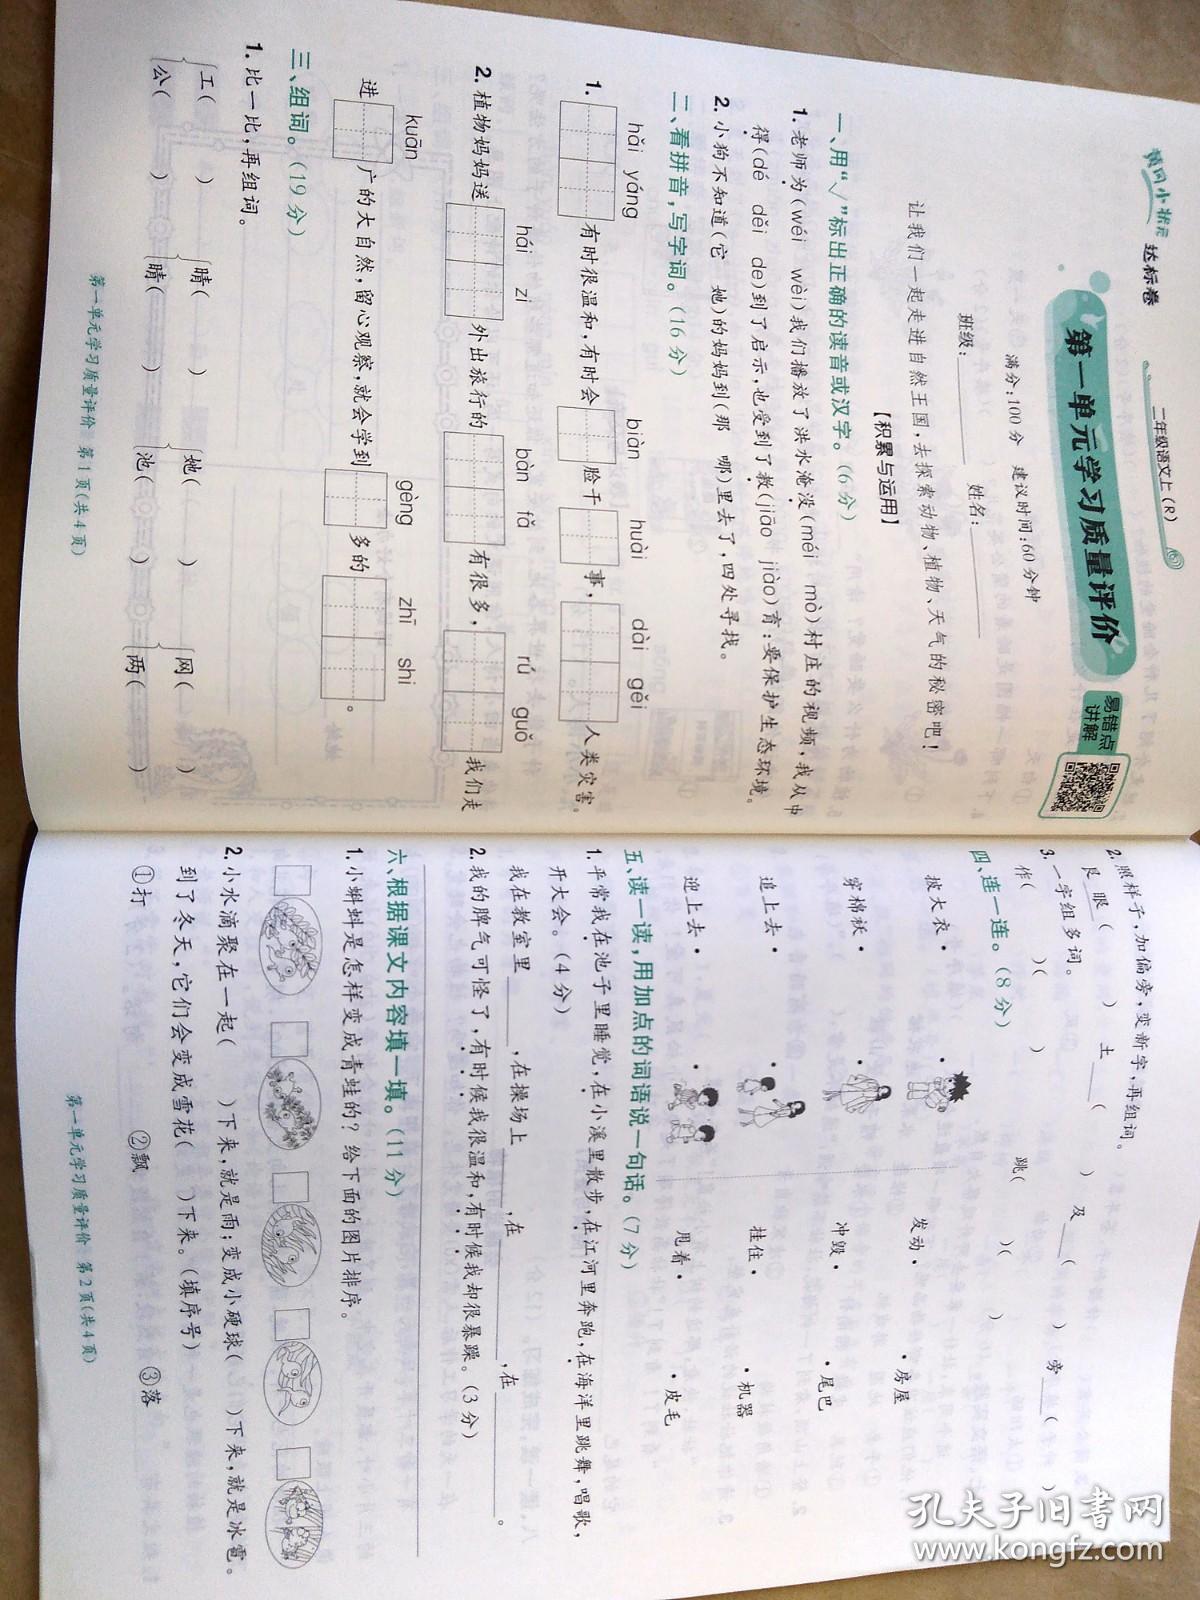 黄冈小状元 达标卷
二年级语文上(R)
第一单元学习质量评价
易错点
讲解
满分:100分 建议时间:60分钟
班级: 姓名:
让我们一起走进自然王国,去探索动物、植物、天气的秘密吧!
【积累与运用】
一、用“√”标出正确的读音或汉字。(6分)
1. 老师为(wéi wèi)我们播放了洪水淹没(méi mò)村庄的视频,我从中
得(dé děi de)到了启示,也受到了教(jiāo jiào)育:要保护生态环境。
2. 小狗不知道(它 她)的妈妈到(那 哪)里去了,四处寻找。
二、看拼音,写字词。(16分)
hǎi yáng biàn huài dài gěi
1. 有时很温和,有时会 脸干 事, 人类灾害。
hái zi bàn fǎ rú guǒ
2. 植物妈妈送 外出旅行的 有很多, 我们走
kuān gèng zhī shi
进 广的大自然,留心观察,就会学到 多的 。
三、组词。(19分)
1. 比一比,再组词。
工( ) 晴( ) 她( ) 网( )
公( ) 睛( ) 池( ) 两( )
第一单元学习质量评价 第1页(共4页)
2. 照样子,加偏旁,变新字,再组词。
艮 眼 ( ) 土 ( ) 及 ( ) 旁 ( )
3. 一字组多词。
作( )( ) 跳( )( )
四、连一连。(8分)
披大衣· · 发动· ·房屋
穿棉袄· · 冲毁· ·尾巴
追上去· · 挂住· ·机器
迎上去· · 甩着· ·皮毛
五、读一读,用加点的词语说一句话。(7分)
1. 平常我在池子里睡觉,在小溪里散步,在江河里奔跑,在海洋里跳舞,唱歌,
开大会。(4分)
我在教室里 ,在操场上 ,在 ,在 。
2. 我的脾气可怪了,有时候我很温和,有时候我却很暴躁。(3分)
六、根据课文内容填一填。(11分)
1. 小蝌蚪是怎样变成青蛙的?给下面的图片排序。
2. 小水滴聚在一起( )下来,就是雨;变成小硬球( )下来,就是冰雹。
到了冬天,它们会变成雪花( )下来。(填序号)
①打 ②飘 ③落
第一单元学习质量评价 第2页(共4页)
孔夫子旧书网
www.kongfz.com